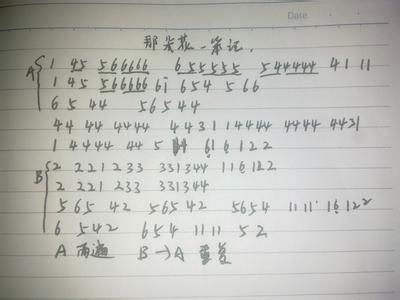 Date
那尖荻一笔记.
A { 1 45 566666 655555 544444 41 11
1 45 566666 6i 654 566
65 44 56544
44 44 4444 4431 14444 4444 4431
1 4444 44 5 616122
B { 2 221 233 331344 116122
2 221 233 331344
565 42 56542 5654 1111 16122
6 542 654 1111 52
A 两遍 B→A 重复